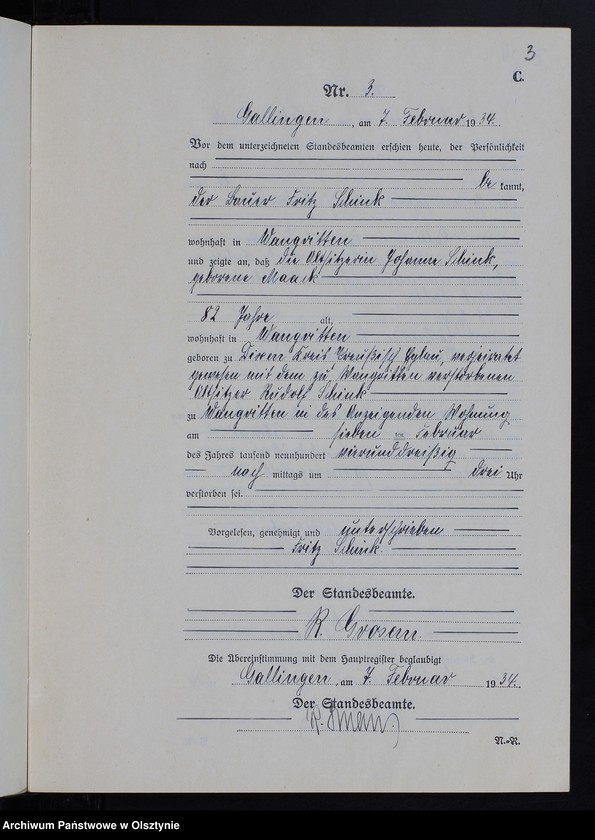 3
C.
Nr. 3.
Gallingen, am 7. Februar 1934.
Vor dem unterzeichneten Standesbeamten erschien heute, der Persönlichkeit
nach
be kannt,
der Bauer Fritz Schink
wohnhaft in Wangritten
und zeigte an, daß die Altsitzerin Johanne Schink,
geborene Maack
82 Jahre alt,
wohnhaft in Wangritten
geboren zu Kreis Preußisch Eylau, verheiratet
gewesen mit dem zu Wangritten verstorbenen
Altsitzer Rudolf Schink
zu Wangritten in des Anzeigenden Wohnung
am sieben ten Februar
des Jahres tausend neunhundert vierunddreißig
nach mittags um drei Uhr
verstorben sei.
Vorgelesen, genehmigt und unterschrieben
Fritz Schink.
Der Standesbeamte.
R.
Die Übereinstimmung mit dem Hauptregister beglaubigt
Gallingen, am 7. Februar 1934.
Der Standesbeamte.
R.
N.-R.
Archiwum Państwowe w Olsztynie